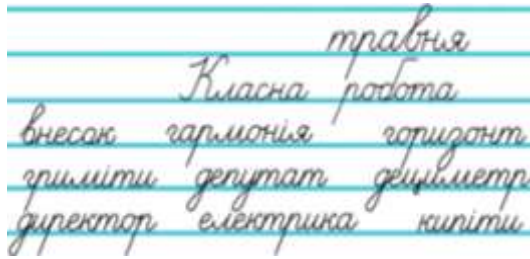 травня
Класна робота
внесок гармонія горизонт
гриміти депутат дециметр
директор електрика кипіти